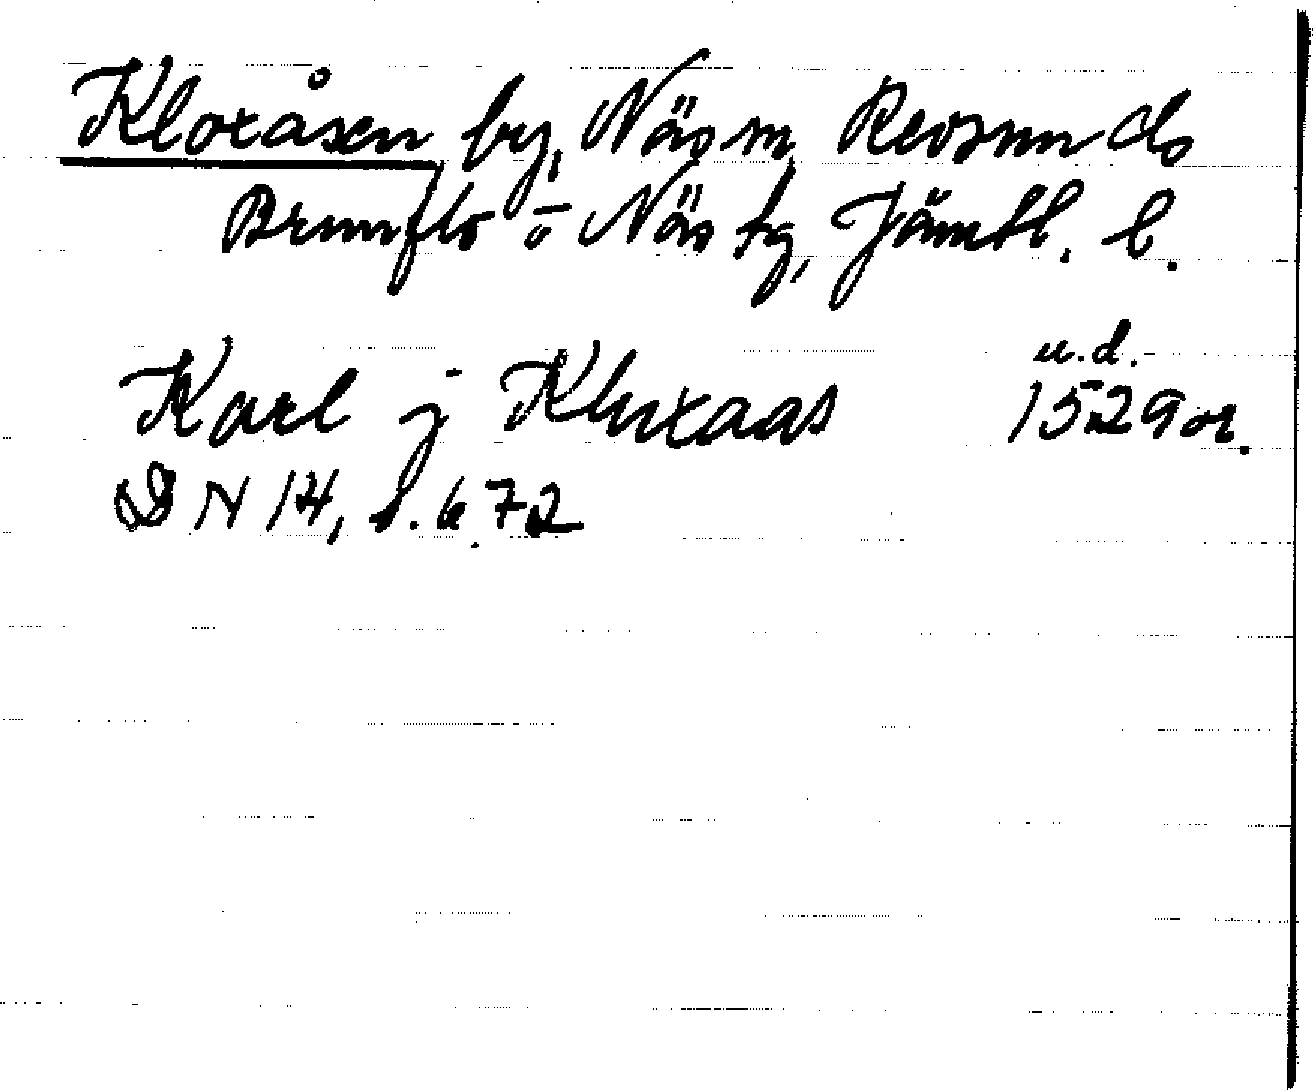 Kloxåsen by, Näs sn, Revsunds
Brunflo o Näs tg, Jämtl. l.
Karl j Kluxaas u.d. 1529 or.
DN 14, s. 672